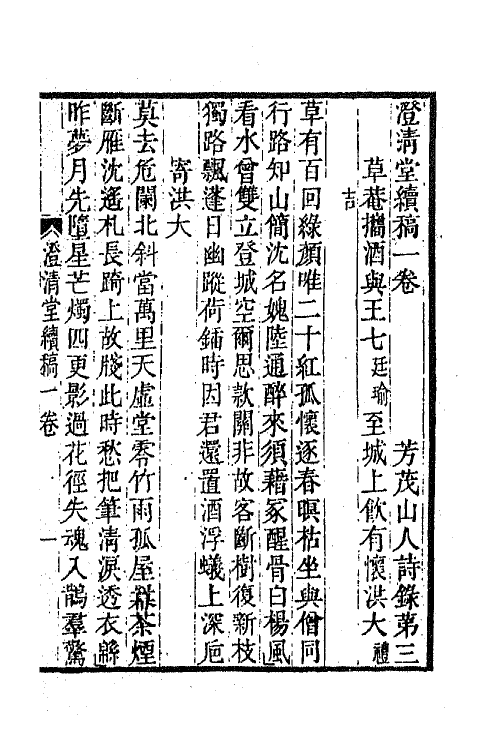 澄清堂續稿一卷　芳茂山人詩錄第三
草菴攜酒與王七廷瑜至城上飲有懷洪大禮
吉
草有百回綠顏唯二十紅孤懷逐春暝枯坐與僧同
行路知山簡沈名媿陸通醉來須藉冢醒骨白楊風
看水曾雙立登城空爾思款關非故客斷樹復新枝
獨路飄蓬日幽蹤荷鍤時因君還置酒浮蟻上深巵
寄洪大
莫去危闌北斜當萬里天虛堂零竹雨孤屋雜茶煙
斷雁沈遙札長踦上故牋此時愁把筆清淚透衣緜
昨夢月先墮星芒燭四更影過花徑失魂入鵲羣驚
澄清堂續稿一卷　一